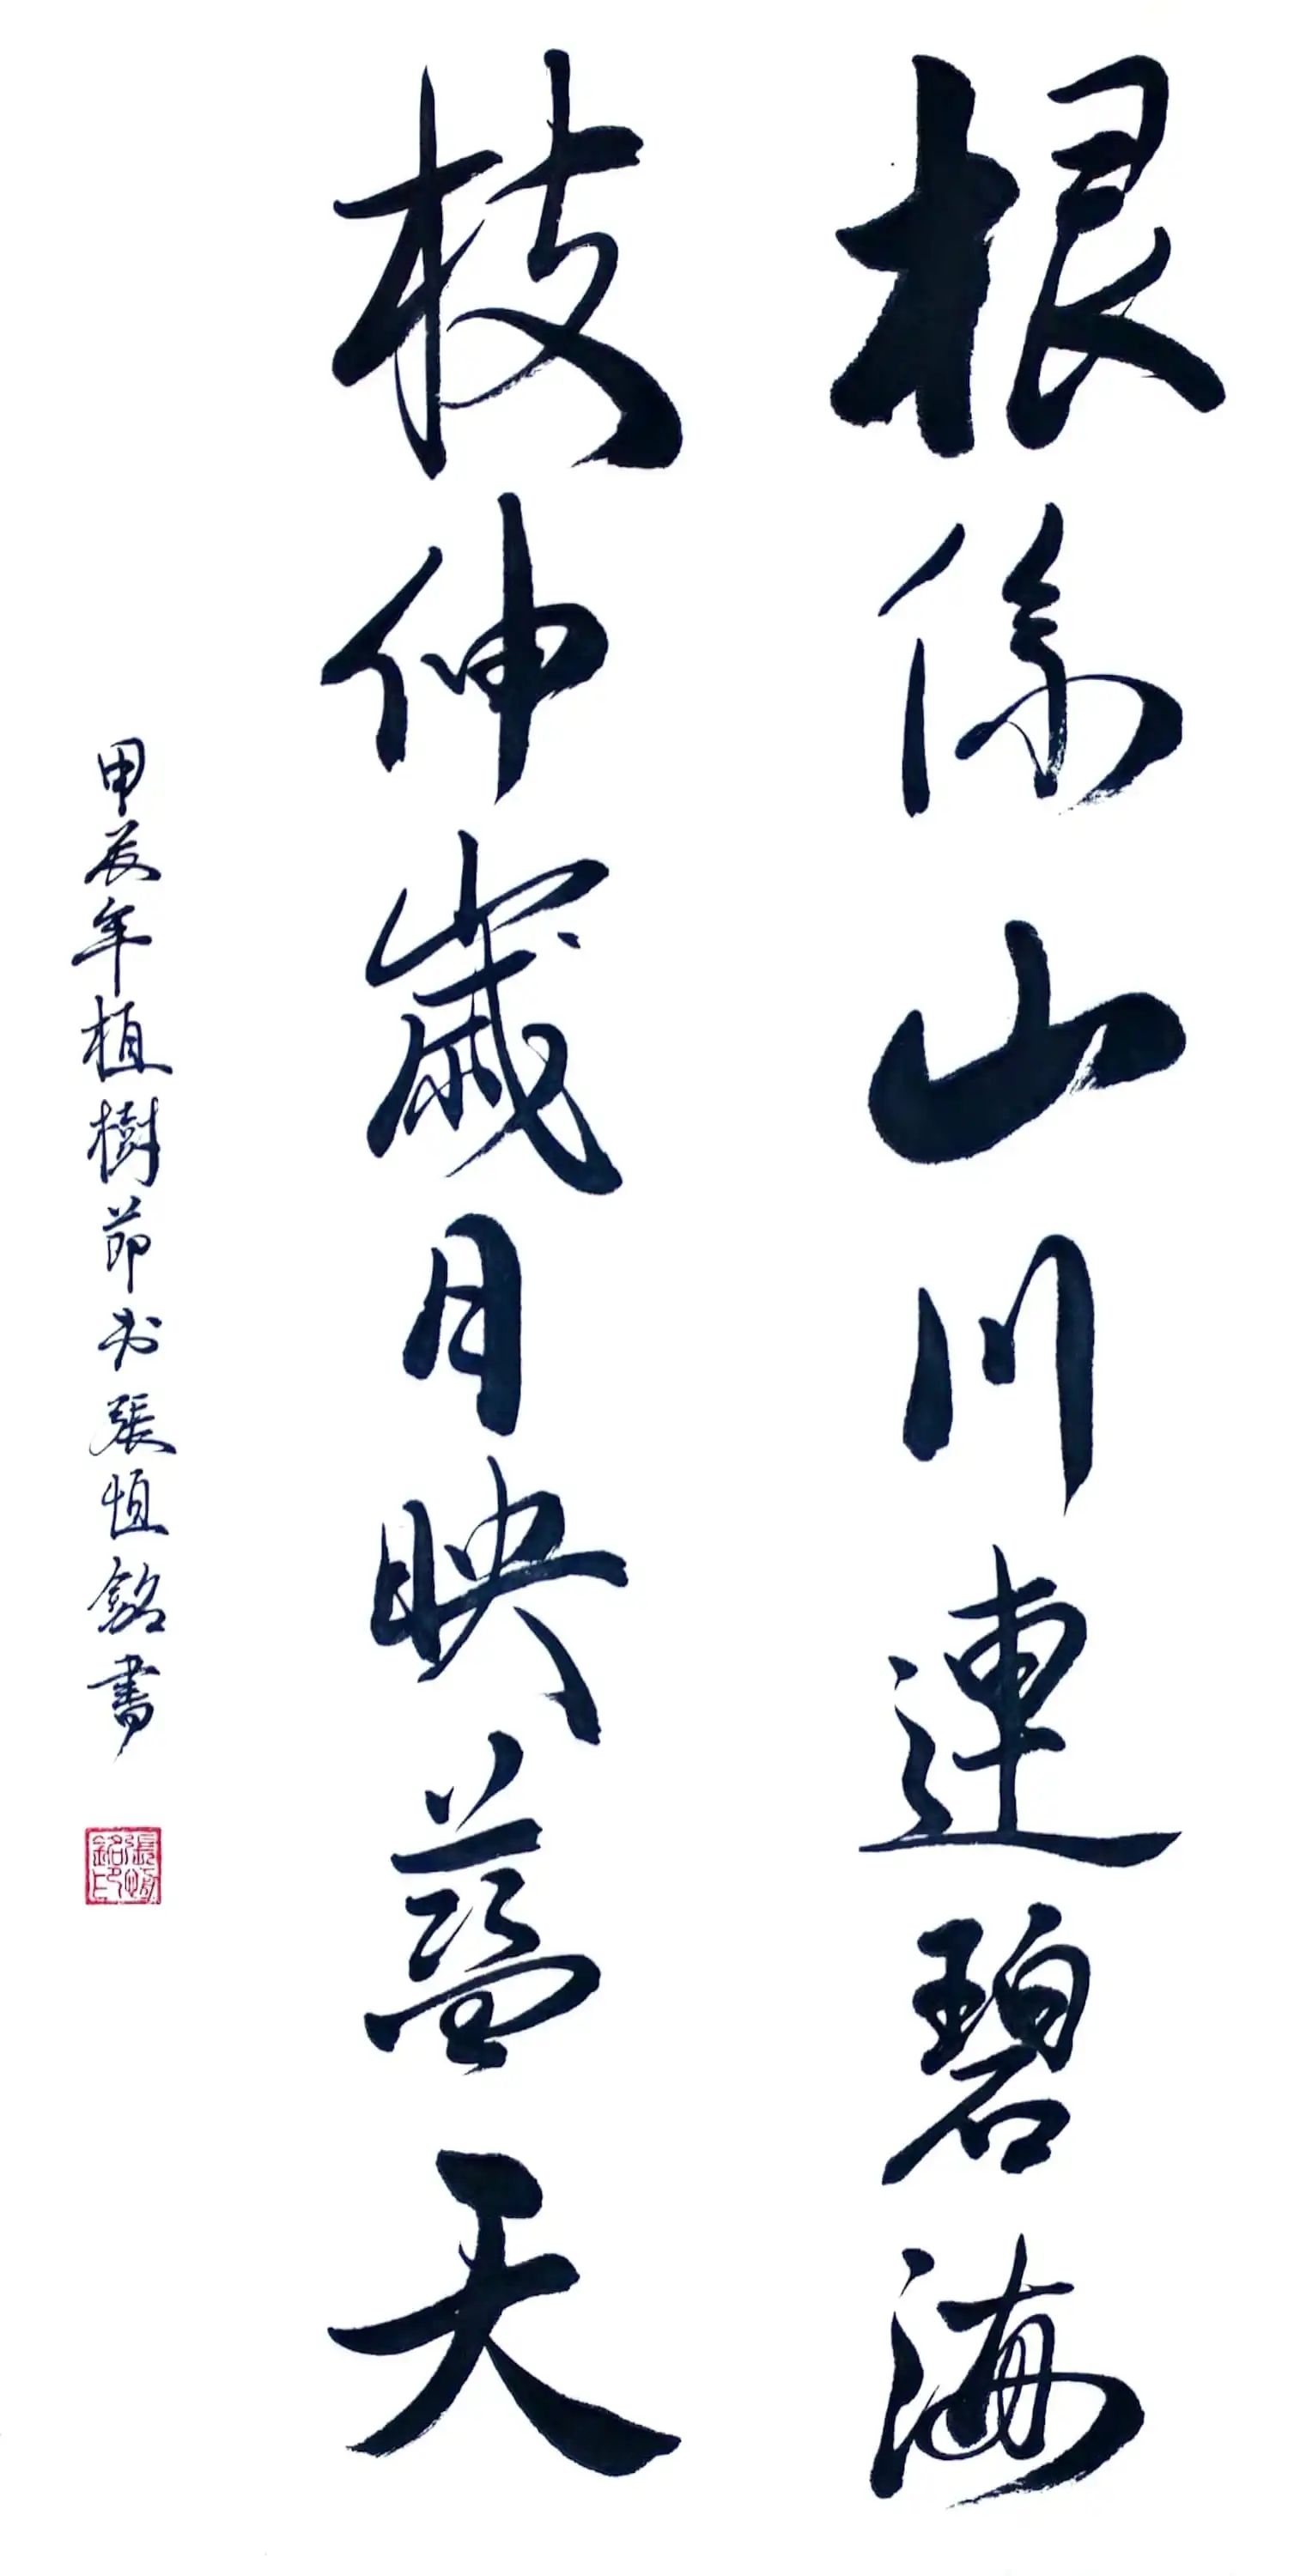 根係山川連碧海
枝伸歲月映藍天
甲辰年植樹節书張恒銘書
張恒銘印